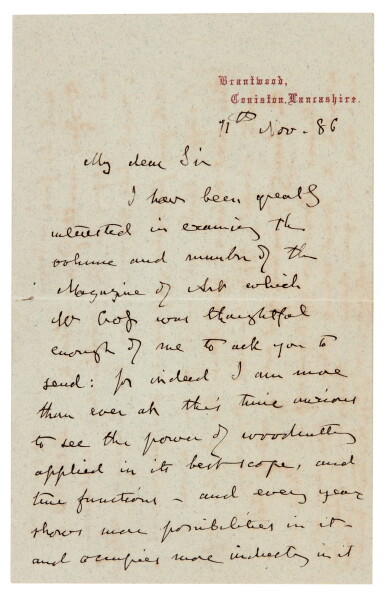 Brantwood,
Coniston, Lancashire.
11th Nov. 86
My dear Sir
I have been greatly
interested in examining the
volume and number of the
Magazine of Art which
Mr was thoughtful
enough of me to ask you to
send: for indeed I am more
than ever at this time anxious
to see the power of woodcutting
applied in its best scope, and
true functions - and every year
shows more possibilities in it -
and occupies more industry in it